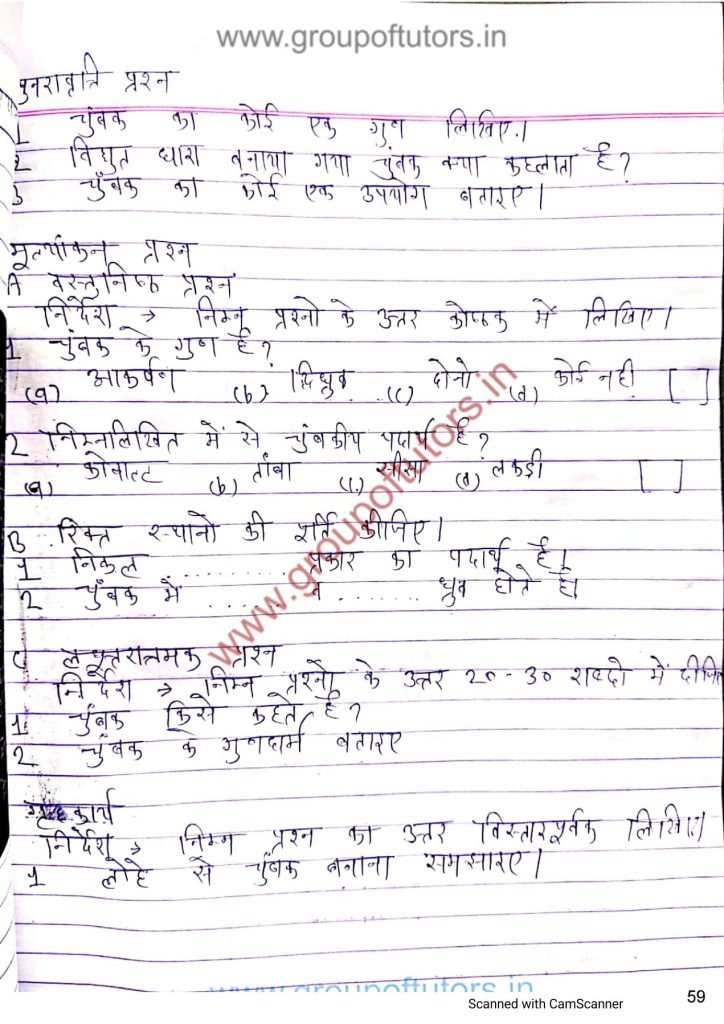 www.groupoftutors.in
पुनरावृत्ति प्रश्न
1 चुंबक का कोई एक गुण लिखिए।
2 विद्युत धारा बनाया गया चुंबक क्या कहलाता है?
3 चुँबक का कोई एक उपयोग बताइए।
मूल्यांकन प्रश्न
A वस्तुनिष्ठ प्रश्न
निर्देश → निम्न प्रश्नो के उत्तर कोष्ठक में लिखिए।
1 चुंबक के गुण है?
(a) आकर्षण (b) द्विध्रुव (c) दोनो (d) कोई नही []
2 निम्नलिखित में से चुंबकीय पदार्थ है?
(a) कोबाल्ट (b) तांबा (c) सीसा (d) लकड़ी []
B रिक्त स्थानो की पूर्ति कीजिए।
1 निकल ........ प्रकार का पदार्थ है।
2 चुंबक में ........ व ........ ध्रुव होते है।
www.groupoftutors.in
C लघूत्तरात्मक प्रश्न
निर्देश → निम्न प्रश्नो के उत्तर 20-30 शब्दो में दीजि
1 चुंबक किसे कहते है?
2 चुंबक के गुणदार्म बताइए
गृहकार्य
निर्देश → निम्न प्रश्न का उत्तर विस्तारपूर्वक लिखिए।
1 लोहे से चुंबक बनाना समझाइए।
www.groupoftutors.in
Scanned with CamScanner
59